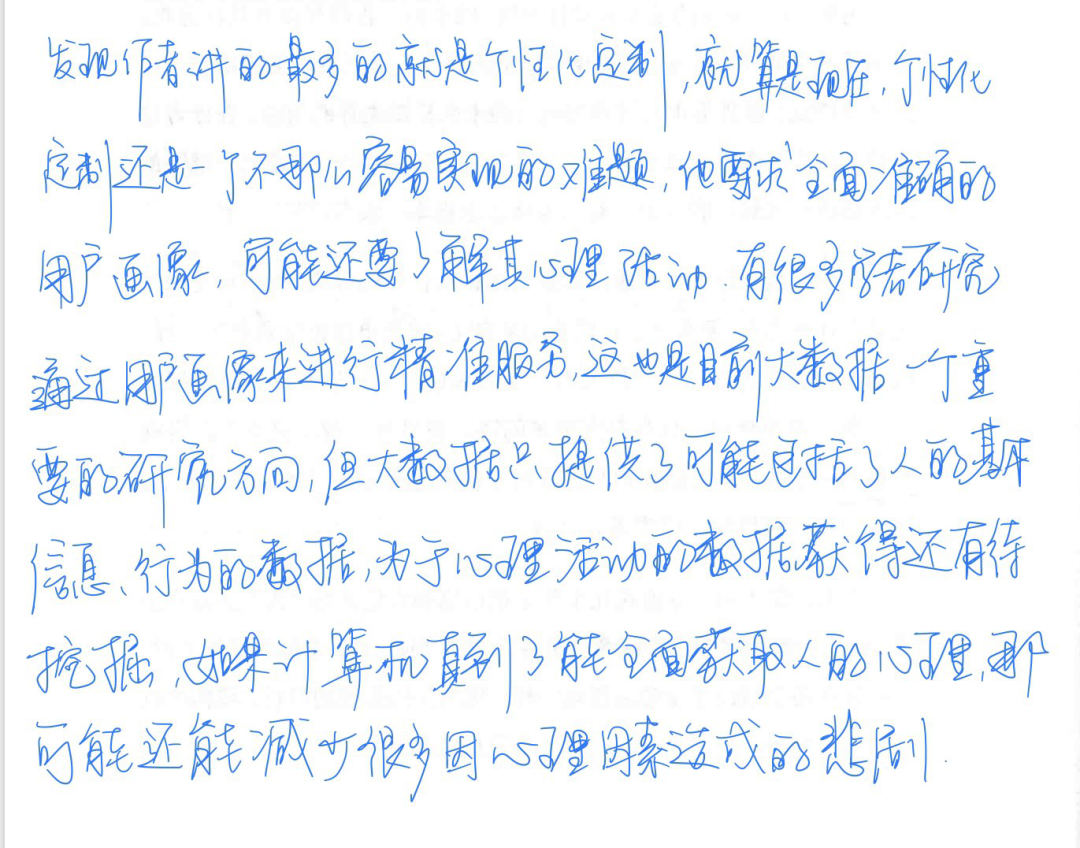 发现作者讲的最多的就是个性化定制,就算是现在,个性化
定制还是一个不那么容易实现的难题,他要求全面准确的
用户画像,可能还要了解其心理活动.有很多学者研究
通过用户画像来进行精准服务,这也是目前大数据一个重
要的研究方向,但大数据只提供了可能包括了人的基本
信息、行为的数据,对于心理活动的数据获得还有待
挖掘,如果计算机真到了能全面获取人的心理,那
可能还能减少很多因心理因素造成的悲剧.